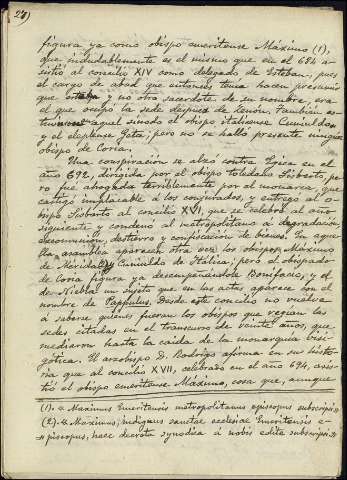 27)
figura ya como obispo emeritense Máximo (1),
que indudablemente es el mismo que en el 684 a-
sistió al concilio XIV como delegado de Esteban, pues
el cargo de abad que entonces tenia hacen presumir
que y no otro sacerdote de su nombre, era
el que ocupó la sede después de Zenón. También es-
tuvieron aquel sinodo el obispo italicense Cuniuldo
y el eleplense Geta; pero no se halló presente ningún
obispo de Coria.
Una conspiración se alzó contra Egica en el
año 692, dirigida por el obispo toledano Sisberto, pe-
ro fué ahogada terriblemente por el monarca, que
castigó implacable a los conjurados, y entregó al o-
bispo Sisberto al concilio XVI, que se celebró al año
siguiente y condenó al metropolitano a degradación,
excomunión, destierro y confiscación de bienes. En aque-
lla asamblea aparecen otra vez los obispos Máximo
de Mérida (2) y Cuniuldo de Itálica; pero el obispado
de Coria figura ya desempeñándole Bonifacio, y el
de Niebla un sujeto que en las actas aparece con el
nombre de Pappulus. Desde este concilio no vuelve
á saberse quienes fueran los obispos que regian las
sedes citadas en el transcurso de veinte años, que
mediaron hasta la caida de la monarquia visi-
gótica. El arzobispo D. Rodrigo afirma en su histo-
ria que al concilio XVII, celebrado en el año 694, asis-
tió el obispo emeritense Máximo, cosa que, aunque
(1). "Maximus Emeritensis metropolitanus episcopus subscripsi."
(2). "Maximus, indignus sanctae ecclesiae Emeritensis e-
piscopus, haec decreta synodica á nobis edita subscripsi."